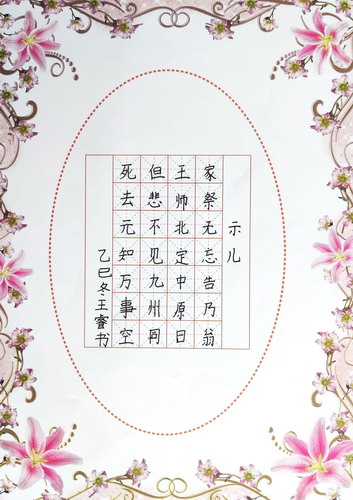 示儿
死去元知万事空
但悲不见九州同
王师北定中原日
家祭无忘告乃翁
乙巳冬王睿书